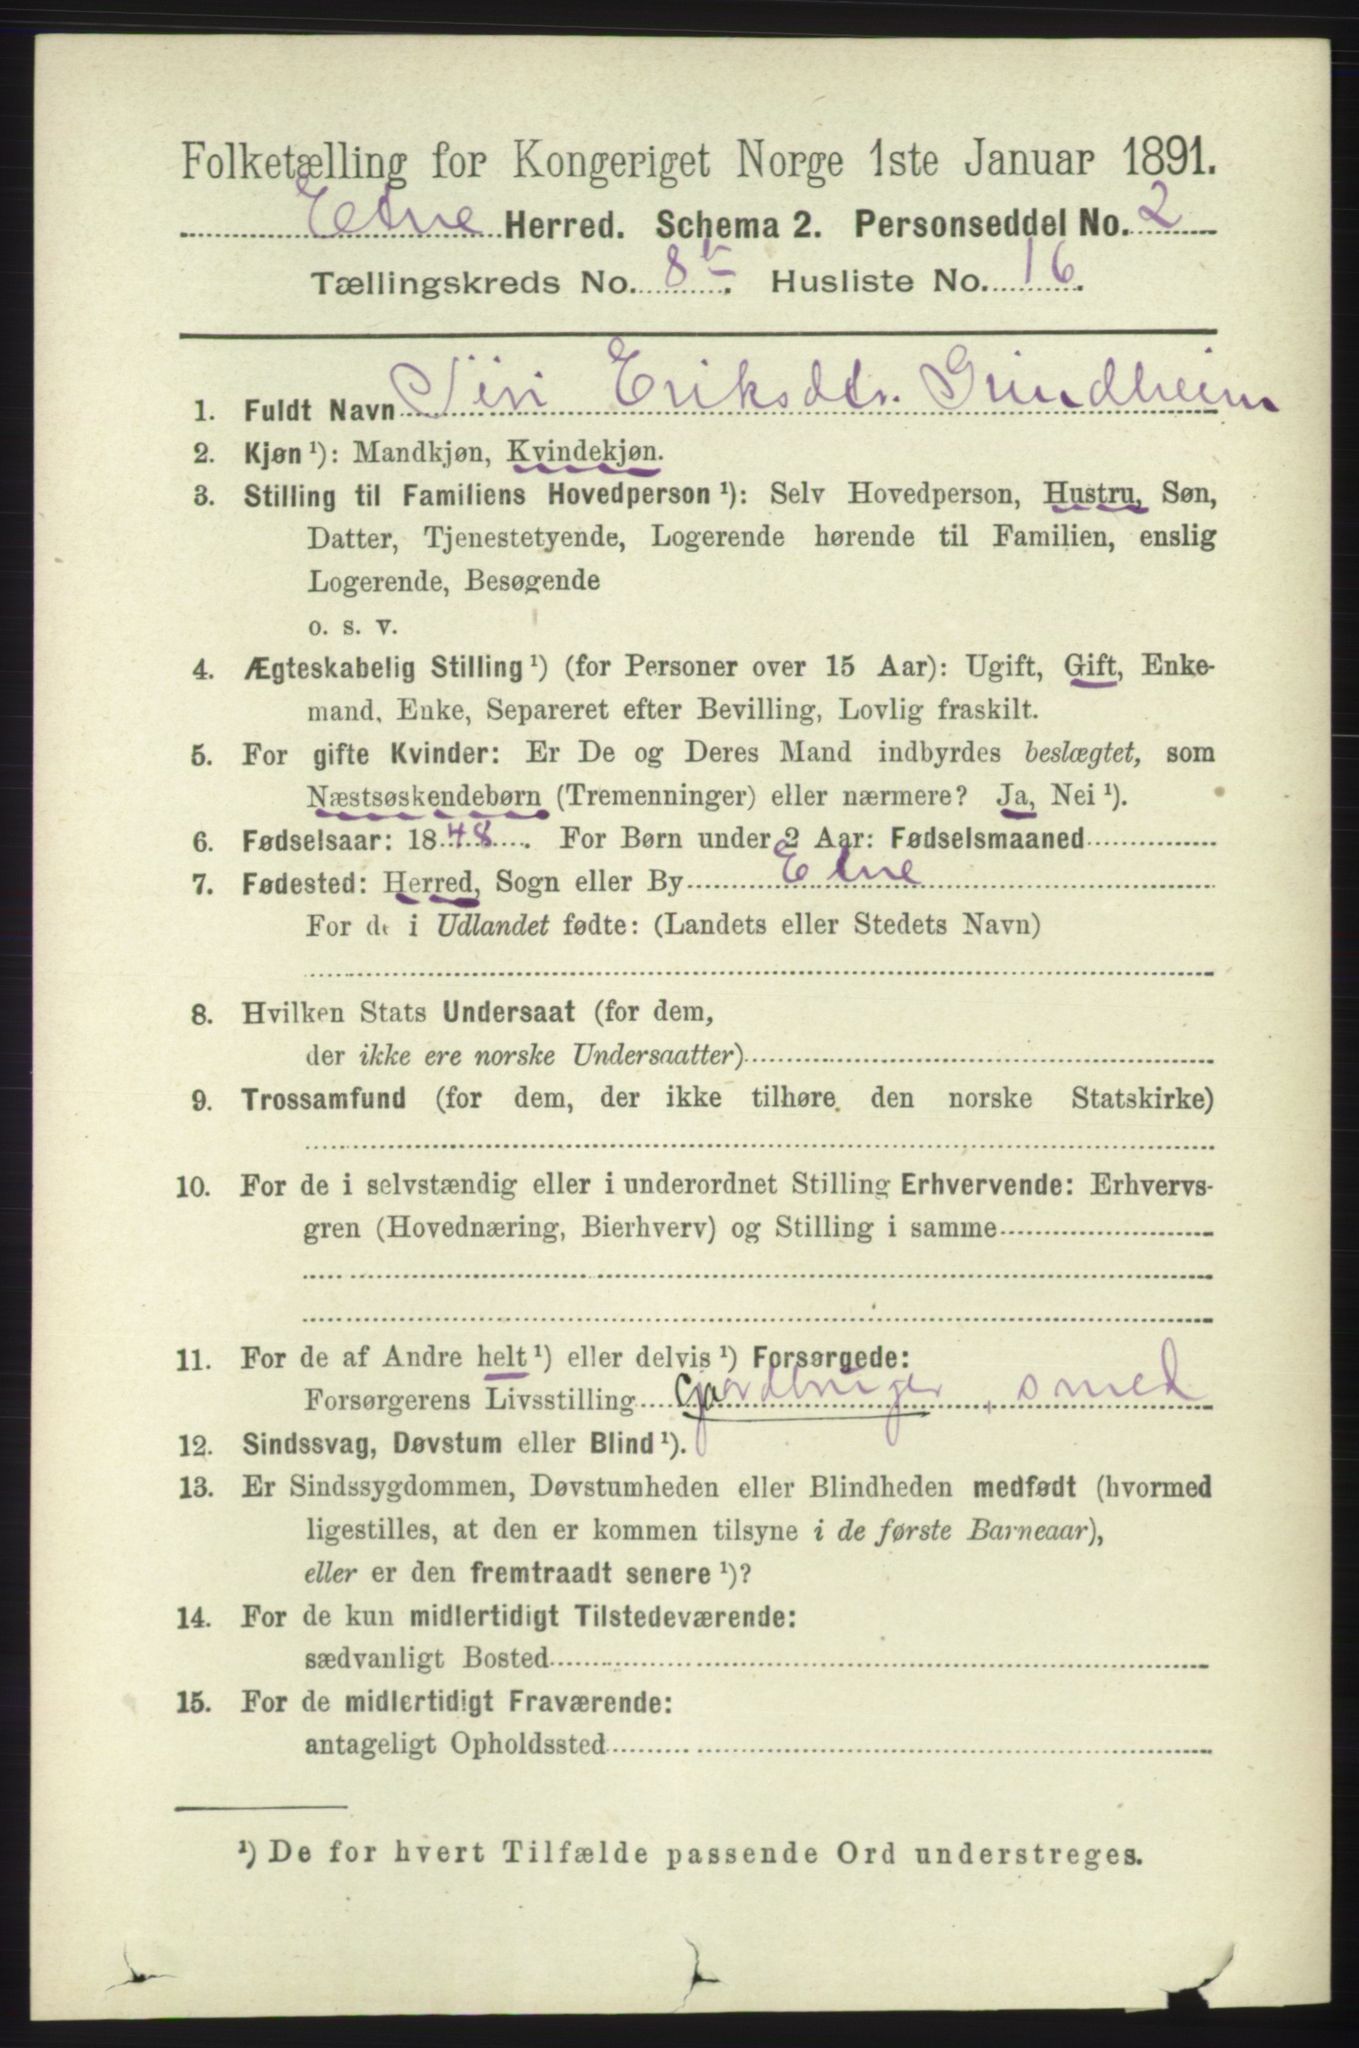 Folketælling for Kongeriget Norge 1ste Januar 1891.
Etne Herred. Schema 2. Personseddel No. 2
Tællingskreds No. 8 . Husliste No. 16 .
1. Fuldt Navn Siri Eriksdtr. Grindheim
2. Kjøn ¹): Mandkjøn, Kvindekjøn.
3. Stilling til Familiens Hovedperson ¹): Selv Hovedperson, Hustru, Søn,
Datter, Tjenestetyende, Logerende hørende til Familien, enslig
Logerende, Besøgende
o. s. v.
4. Ægteskabelig Stilling ¹) (for Personer over 15 Aar): Ugift, Gift, Enke-
mand, Enke, Separeret efter Bevilling, Lovlig fraskilt.
5. For gifte Kvinder: Er De og Deres Mand indbyrdes beslægtet, som
Næstsøskendebørn (Tremenninger) eller nærmere? Ja, Nei ¹).
6. Fødselsaar: 1848. For Børn under 2 Aar: Fødselsmaaned
7. Fødested: Herred, Sogn eller By Etne
For de i Udlandet fødte: (Landets eller Stedets Navn)
8. Hvilken Stats Undersaat (for dem,
der ikke ere norske Undersaatter)
9. Trossamfund (for dem, der ikke tilhøre den norske Statskirke)
10. For de i selvstændig eller i underordnet Stilling Erhvervende: Erhvervs-
gren (Hovednæring, Bierhverv) og Stilling i samme
11. For de af Andre helt ¹) eller delvis ¹) Forsørgede:
Forsørgerens Livsstilling gjordbruger, smed
12. Sindssvag, Døvstum eller Blind ¹).
13. Er Sindssygdommen, Døvstumheden eller Blindheden medfødt (hvormed
ligestilles, at den er kommen tilsyne i de første Barneaar),
eller er den fremtraadt senere ¹)?
14. For de kun midlertidigt Tilstedeværende:
sædvanligt Bosted
15. For de midlertidigt Fraværende:
antageligt Opholdssted
¹) De for hvert Tilfælde passende Ord understreges.